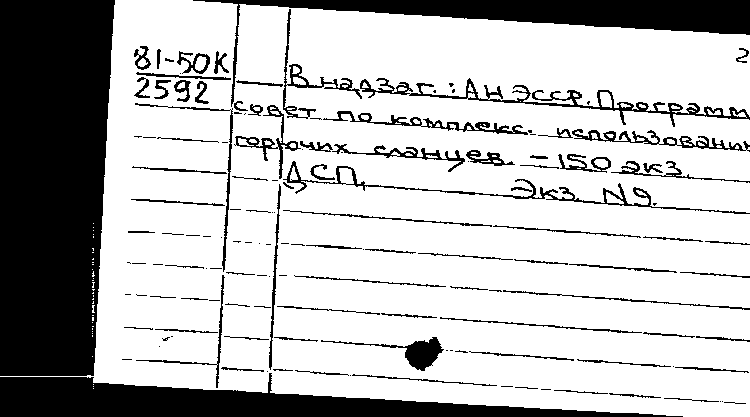 2
81-50К
2592
В надзаг.: АН ЭССР. Программ
совет по комплекс. использовани
горючих сланцев. - 150 экз.
ДСП. Экз. N9.